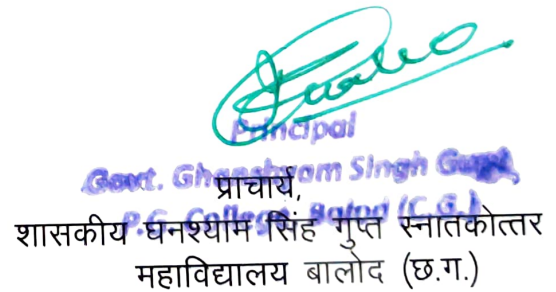 Principal
Govt. Ghanshyam Singh Gupt
प्राचार्य,
P.G. College, Balod (C.G.)
शासकीय घनश्याम सिंह गुप्त स्नातकोत्तर
महाविद्यालय बालोद (छ.ग.)